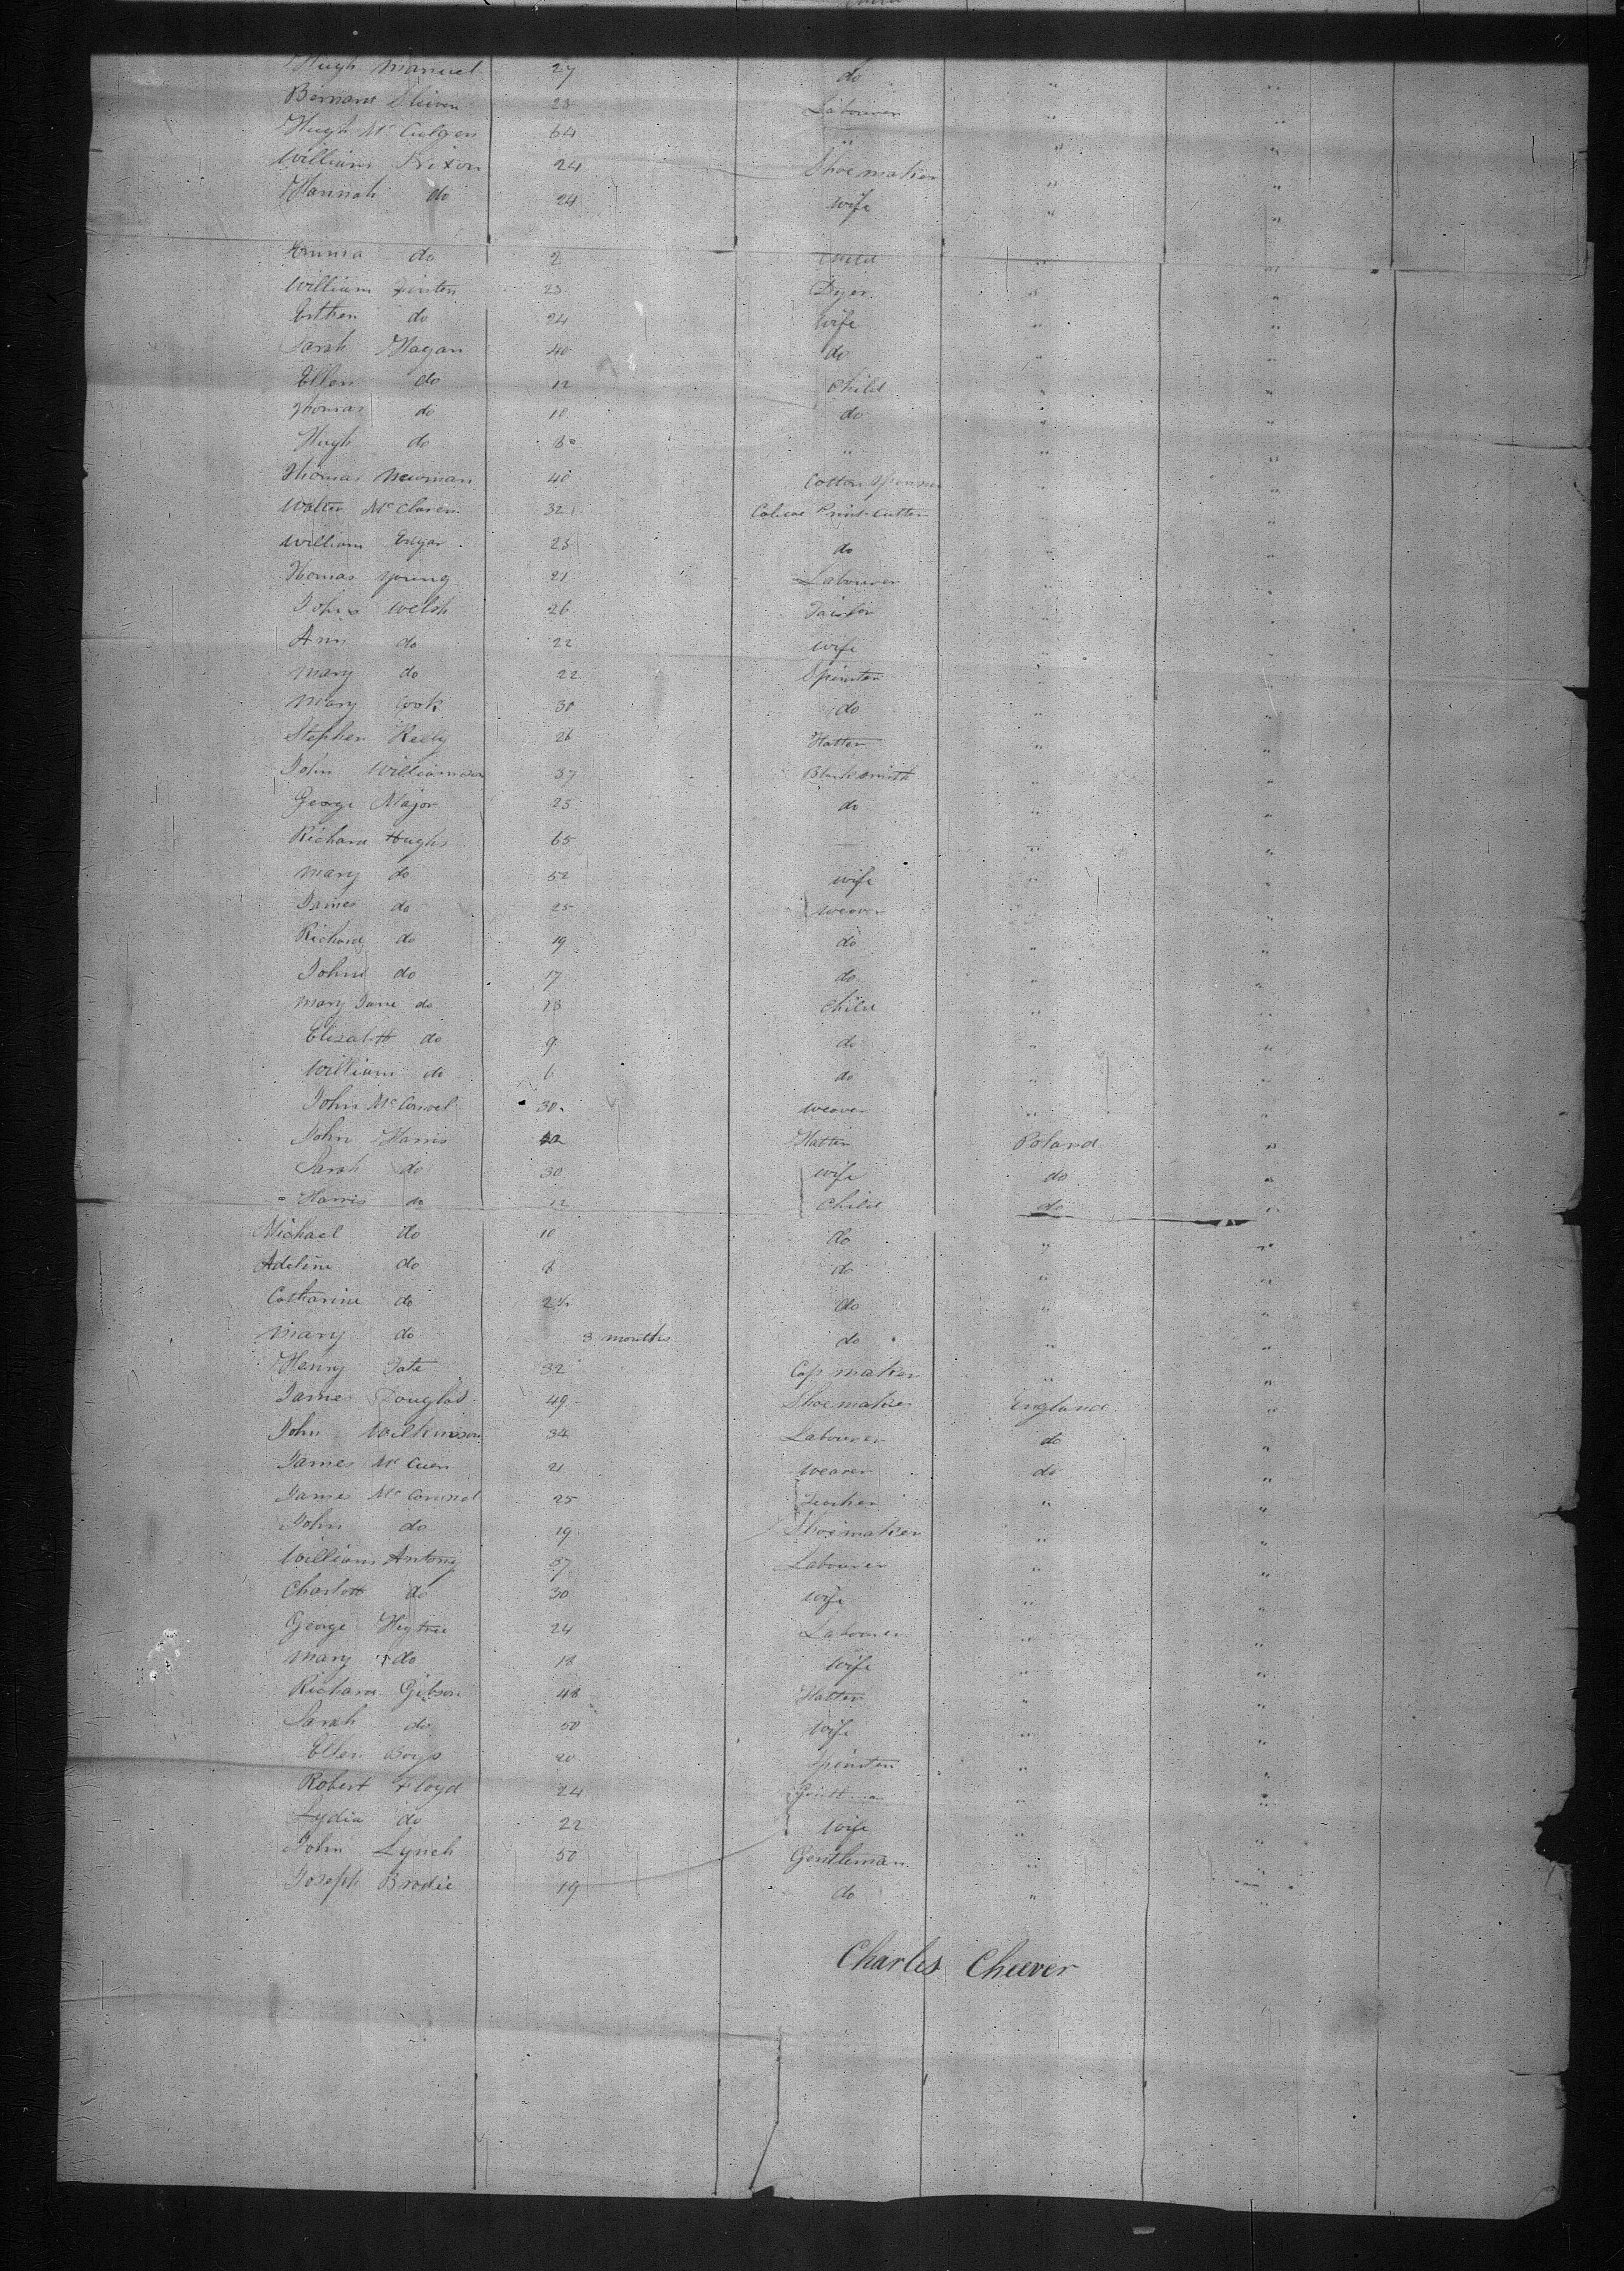 Hugh Manuel 27 do " "
Bernard 23 Labourer " "
Hugh Mc Culgen 64 " " "
William Nixon 24 Shoemaker " "
Hannah do 24 wife " "
Emma do 2 Child " "
William 23 Dyer " "
Esther do 24 wife " "
Sarah Hagan 40 do " "
Ellen do 12 Child " "
Thomas do 10 do " "
Hugh do 6 " " "
Thomas Newman 40 Cotton Spinner " "
Walter Mc Claren 32 Calicoe Print Cutter "
William Edgar 23 do " "
Thomas Young 21 Labourer " "
John Welsh 26 " "
Ann do 22 wife " "
Mary do 22 Spinster " "
Mary Cook 30 do " "
Stephen Kelly 26 Hatter " "
John Williamson 37 Blacksmith " "
George Major 25 do " "
Richard Hughs 65 " "
Mary do 52 wife " "
James do 25 weaver " "
Richard do 19 do " "
John do 17 do " "
Mary Jane do 13 Child " "
Elizabtt do 9 do " "
William do 6 do " "
John Mc Connel 30 weaver " "
John Harris 42 Hatter Poland "
Sarah do 30 wife do "
Harris do 12 Child do "
Michael do 10 do " "
Adeline do 8 do " "
Catharine do 2½ do " "
Mary do 3 months do " "
Henry Tate 32 Cap maker " "
James Douglas 49 Shoemaker England "
John Wilkinson 34 Labourer do "
James Mc Cuen 21 weaver do "
James Mc Connel 25 " "
John do 19 Shoemaker " "
William Antony 37 Labourer " "
Charlott do 30 wife " "
George 24 Labourer " "
Mary do 18 wife " "
Richard Gibson 48 Hatter " "
Sarah do 50 wife " "
Ellen Boys 20 Spinster " "
Robert Floyd 24 " "
Lydia do 22 wife " "
John Lynch 50 Gentleman " "
Joseph Brodie 19 do " "
Charles Cheever